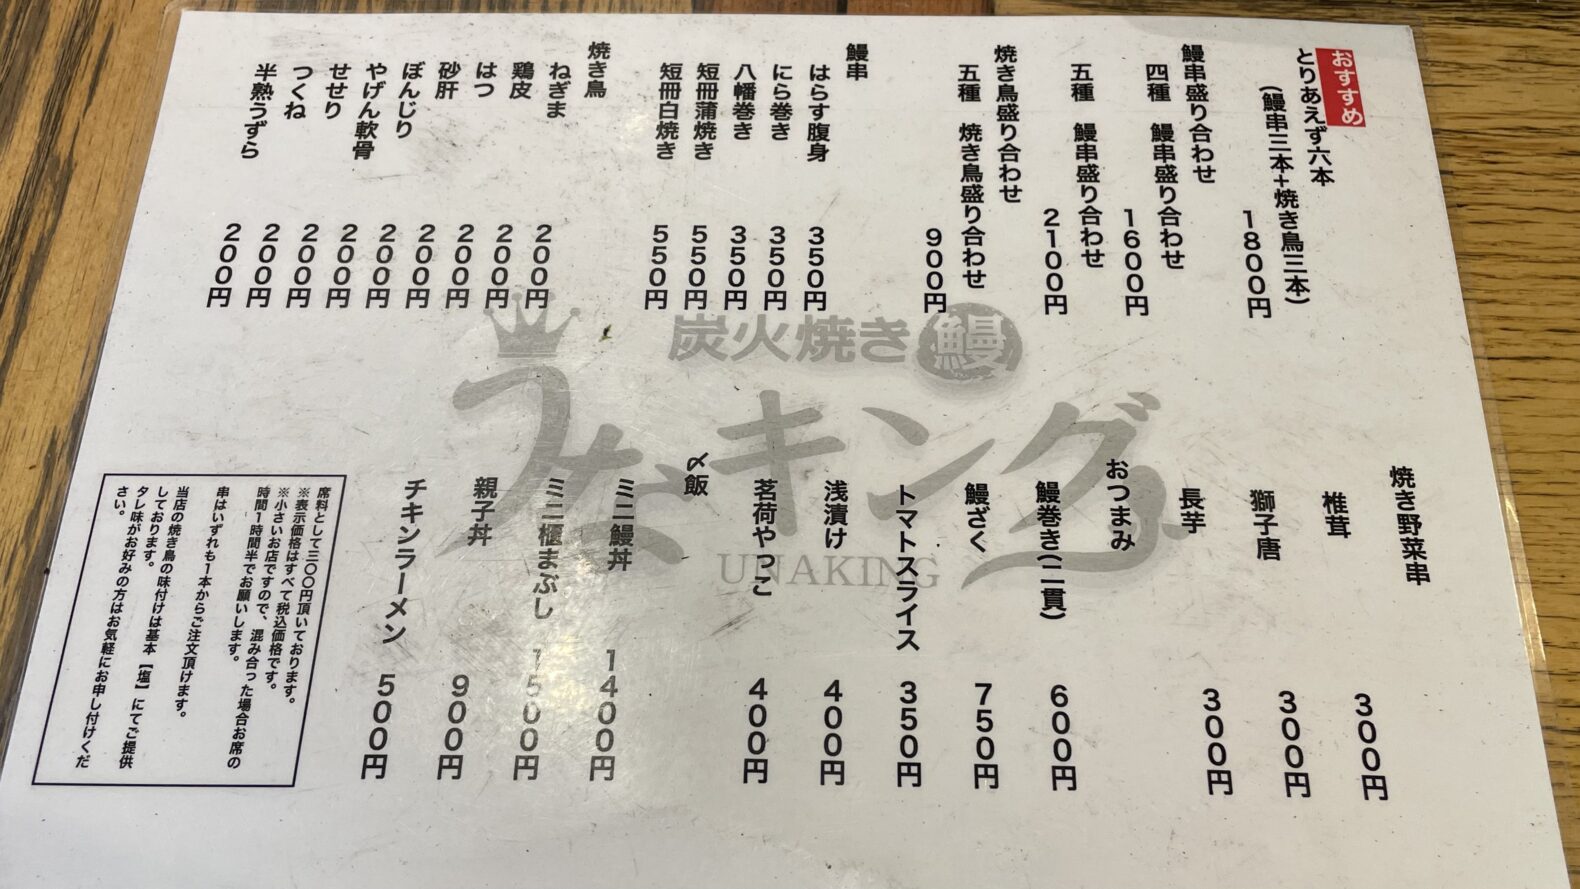 おすすめ
とりあえず六本
(鰻串三本+焼き鳥三本)
1800円
鰻串盛り合わせ
四種 鰻串盛り合わせ 1600円
五種 鰻串盛り合わせ 2100円
焼き鳥盛り合わせ
五種 焼き鳥盛り合わせ 900円
鰻串
はらす腹身 350円
にら巻き 350円
八幡巻き 350円
短冊蒲焼き 550円
短冊白焼き 550円
焼き鳥
ねぎま 200円
鶏皮 200円
はつ 200円
砂肝 200円
ぼんじり 200円
やげん軟骨 200円
せせり 200円
つくね 200円
半熟うずら 200円
炭火焼き鰻
うなキング
UNAKING
焼き野菜串
椎茸 300円
獅子唐 300円
長芋 300円
おつまみ
鰻巻き(二貫) 600円
鰻ざく 750円
トマトスライス 350円
浅漬け 400円
茗荷やっこ 400円
〆飯
ミニ鰻丼 1400円
ミニ櫃まぶし 1500円
親子丼 900円
チキンラーメン 500円
席料として三〇〇円頂いております。
※表示価格はすべて税込価格です。
※小さいお店ですので、混み合った場合お席の
時間1時間半でお願いします。
串はいずれも1本からご注文頂けます。
当店の焼き鳥の味付けは基本【塩】にてご提供
しております。
タレ味がお好みの方はお気軽にお申し付けくだ
さい。